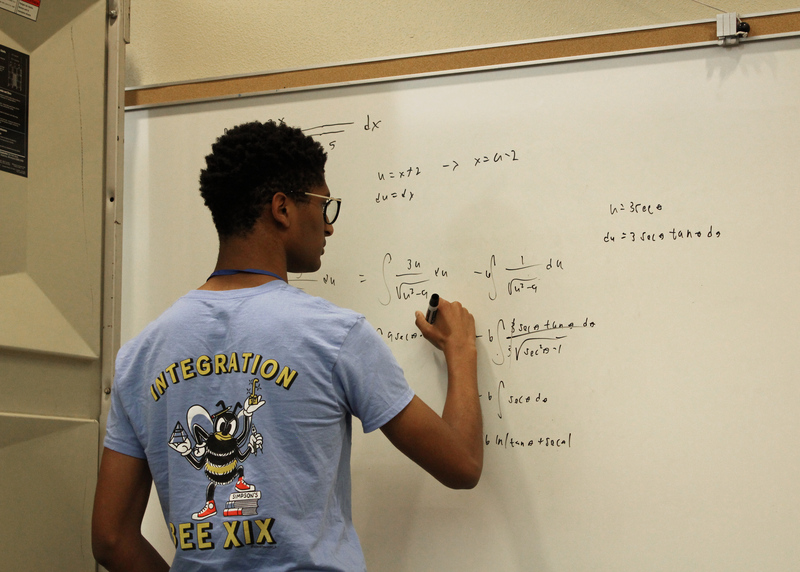 dx
5
u = x+2 -> x = u-2
du = dx
u = 3secθ
du = 3 secθ tanθ dθ
du = ∫ 3u/√(u²-9) du - 6∫ 1/√(u²-9) du
9secθ - 6∫ 3 secθ tanθ dθ/3√(sec²θ-1)
- 6 ∫ secθ dθ
6 ln|tanθ + secθ|
INTEGRATION
SIMPSON'S
BEE XIX